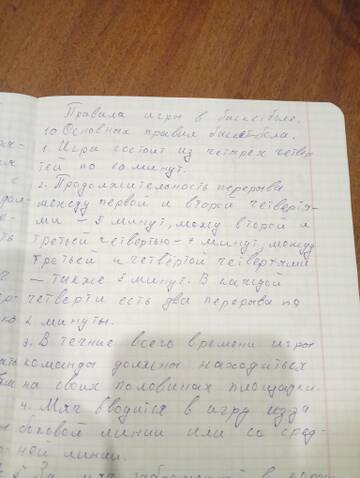 Правила игры в баскетболе.
10 Основных правил баскет-бола.
1. Игра состоит из четырёх четвер
тей по 10 минут.
2. Продолжительность перерыва
между первой и второй четвертя-
ми - 5 минут, между второй и
третьей четвертью - 7 минут, между
третьей и четвёртой четвертями
— также 5 минут. В каждой
четверти есть два перерыва по
2 минуты.
3. В течние всего времени игры
команда должна находиться
на своих половинах площадки.
4. Мяч вводится в игру из за
боковой линии или со сред-
ней линии.